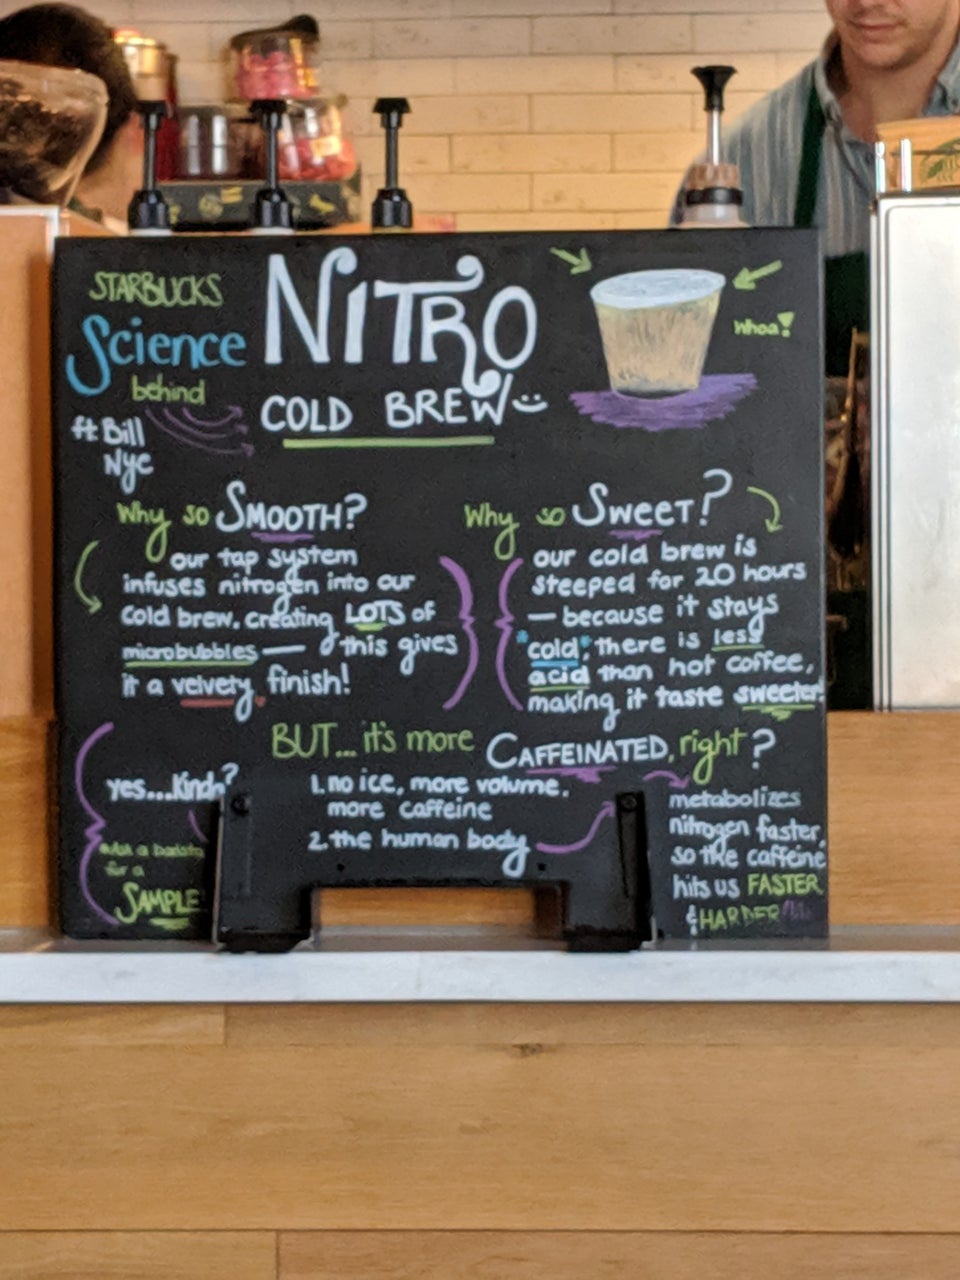 STARBUCKS
Science
behind
NITRO
COLD BREW
ft. Bill
Nye
Whoa!
Why so SMOOTH?
our tap system
infuses nitrogen into our
cold brew, creating LOTS of
microbubbles — this gives
it a velvety finish!
Why so SWEET?
our cold brew is
steeped for 20 hours
— because it stays
*cold*, there is less
acid than hot coffee,
making it taste sweeter!
BUT... it's more CAFFEINATED, right?
yes...Kinda?
1. no ice, more volume,
more caffeine
2. the human body
metabolizes
nitrogen faster,
so the caffeine
hits us FASTER
& HARDER
*Ask a barista
for a
SAMPLE